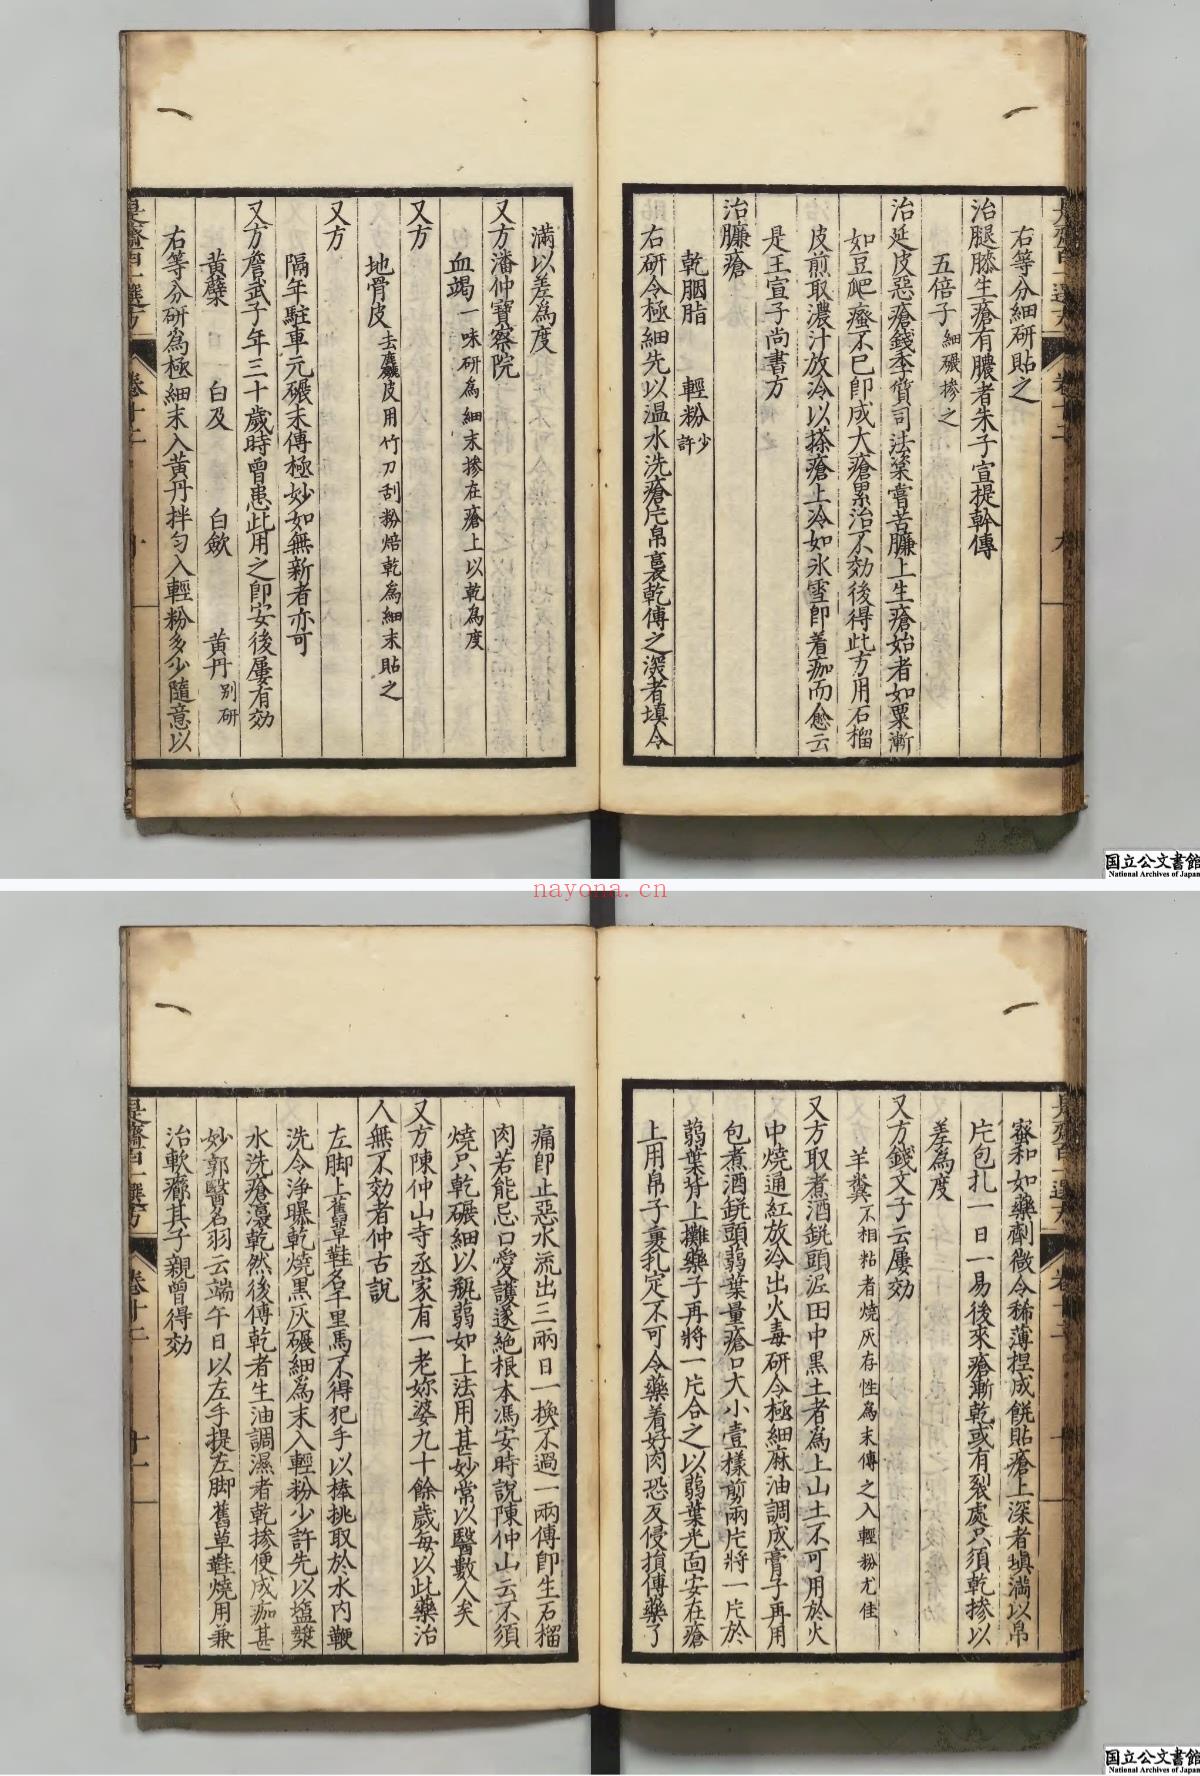 右等分細研貼之
治腿膝生瘡有膿者朱子宣提幹傳
五倍子 細碾摻之
治延皮惡瘡錢季質司法榘嘗苦臁上生瘡始者如粟漸
如豆爬癢不已卽成大瘡累治不効後得此方用石榴
皮煎取濃汁放冷以搽瘡上冷如氷雪卽着痂而愈云
是王宣子尚書方
治臁瘡
乾胭脂 輕粉 少許
右研令極細先以温水洗瘡片帛裛乾傅之深者填令
滿以差爲度
又方潘仲寶察院
血竭 一味研爲細末摻在瘡上以乾爲度
又方
地骨皮 去麤皮用竹刀刮粉焙乾爲細末貼之
又方
隔年駐車元碾末傅極妙如無新者亦可
又方詹武子年三十歲時曾患此用之卽安後屢有効
黃蘗 白及 白斂 黃丹 别研
右等分研爲極細末入黃丹拌匀入輕粉多少隨意以
是齋百一選方 卷十二 十
nayona.cn
国立公文書館
National Archives of Japan
蜜和如藥劑微令稀薄捏成餅貼瘡上深者塡滿以帛
片包扎一日一易後來瘡漸乾或有裂處只須乾摻以
差爲度
又方錢文子云屢効
羊糞 不相粘者燒灰存性爲末傅之入輕粉尤佳
又方取煮酒銚頭泥田中黒土者爲上山土不可用於火
中燒通紅放冷出火毒研令極細麻油調成膏子再用
包煮酒銚頭蒻葉量瘡口大小壹樣剪兩片將一片於
蒻葉背上攤藥子再將一片合之以蒻葉光面安在瘡
上用帛子裹扎定不可令藥着好肉恐反侵損傅藥了
痛卽止惡水流出三兩日一換不過一兩傅卽生石榴
肉若能忌口愛護遂絶根本馮安時說陳仲山云不須
燒只乾碾細以瓶蒻如上法用甚妙常以醫數人矣
又方陳仲山寺丞家有一老妳婆九十餘歲每以此藥治
人無不効者仲古說
左脚上舊草鞋名千里馬不得犯手以棒挑取於水内鞭
洗令浄曝乾燒黒灰碾細爲末入輕粉少許先以塩漿
水洗瘡瀼乾然後傅乾者生油調濕者乾摻便成痂甚
妙郭醫名羽云端午日以左手提左脚舊草鞋燒用兼
治軟癤其子親曾得効
是齋百一選方 卷十二 十一
国立公文書館
National Archives of Japan